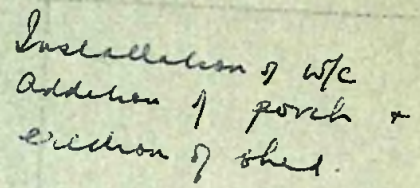 Installation of w/c
Addition of porch +
erection of shed.